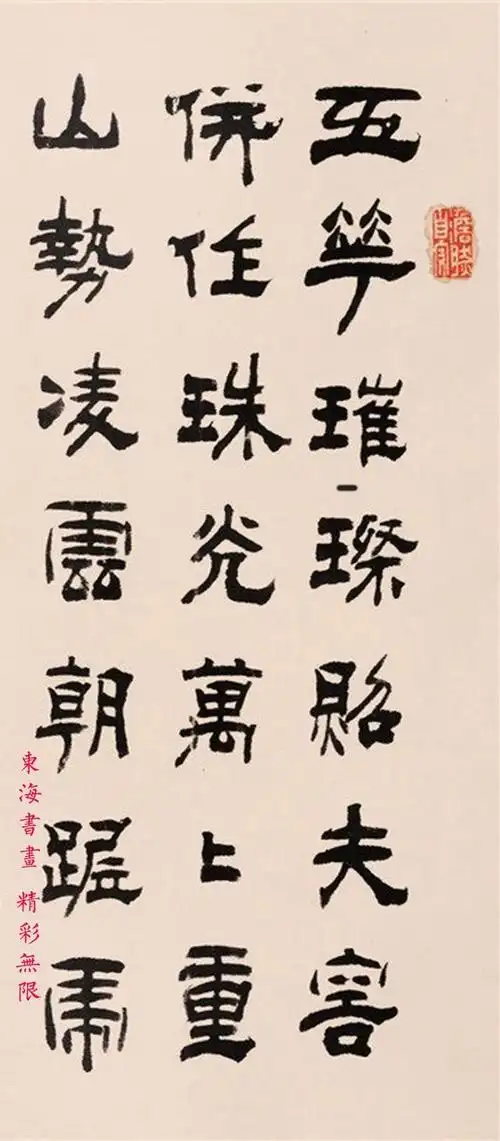 五華璀璨貽夫窖
併任珠光萬上重
山勢凌雲朝踞虎
東海書畫 精彩無限